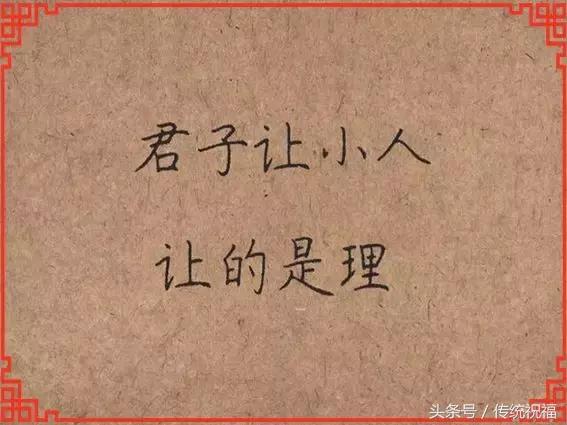 君子让小人
让的是理
头条号／传统祝福